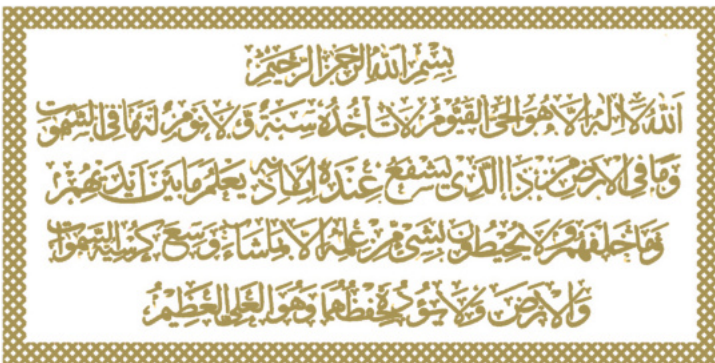 بسم الله الرحمن الرحيم
الله لا اله الا هو الحي القيوم لا تأخذه سنة ولا نوم له ما في السموت
وما في الارض من ذا الذي يشفع عنده الا باذنه يعلم ما بين ايديهم
وما خلفهم ولا يحيطون بشئ من علمه الا بما شاء وسع كرسيه السموت
والارض ولا يئوده حفظهما وهو العلي العظيم